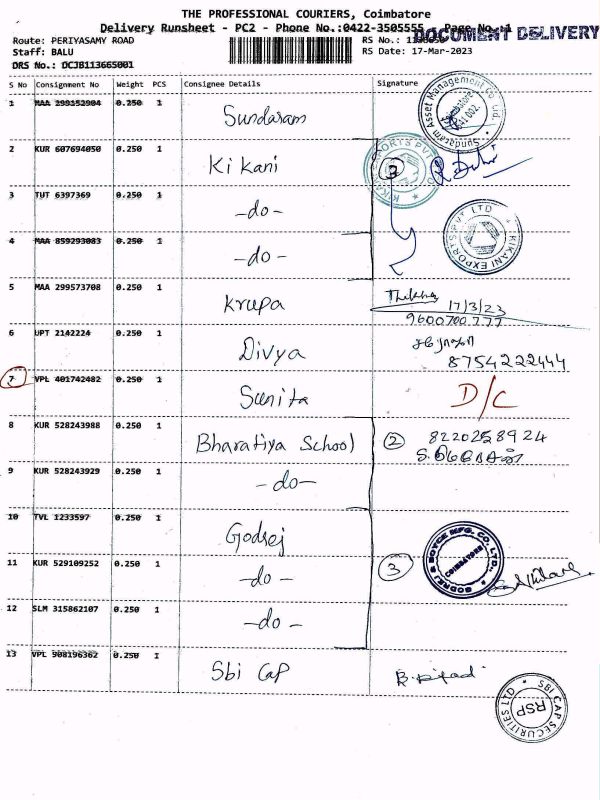 THE PROFESSIONAL COURIERS, Coimbatore
Delivery Runsheet - PC2 - Phone No.:0422-3505555 Page No.:1
DOCUMENT DELIVERY
Route: PERIYASAMY ROAD RS No.:
Staff: BALU RS Date: 17-Mar-2023
DRS No.: DCJB113665001
S No Consignment No Weight PCS Consignee Details Signature
1 MAA 299352904 0.250 1 Sundaram
Sundaram Asset Management Co. Ltd. Coimbatore
2 KUR 607694050 0.250 1 Kikani 3
KIKANI EXPORTS PVT LTD
3 TUT 6397369 0.250 1 -do-
4 MAA 859293083 0.250 1 -do-
KIKANI EXPORTS PVT LTD
5 MAA 299573708 0.250 1 Krupa 17/3/23
9600700777
6 UPT 2142224 0.250 1 Divya
8754222444
7 VPL 401742482 0.250 1 Sunita D/C
8 KUR 528243988 0.250 1 Bharatiya School 2 8220258924
9 KUR 528243929 0.250 1 -do-
10 TVL 1233597 0.250 1 Godrej
GODREJ & BOYCE MFG. CO. LTD., COIMBATORE
11 KUR 529109252 0.250 1 -do- 3
12 SLM 315862107 0.250 1 -do-
13 VPL 908196362 0.250 1 Sbi Cap
SBI CAP SECURITIES LTD RSP